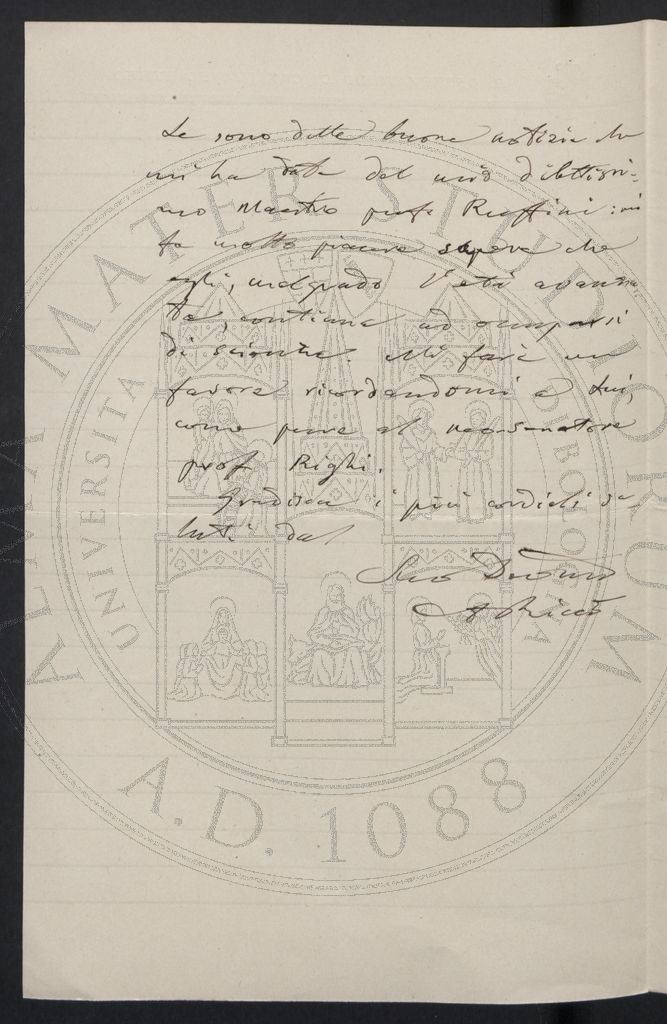 Le sono dette buone notizie che
mi ha date del mio dilettissi-
mo Maestro prof. Ruffini: mi
fa molto piacere sapere che
egli, malgrado l'età avanza-
ta, continua ad occuparsi
di scienza. Mi farà un
favore ricordandomi a Lui,
come pure al neo-senatore
prof. Righi.
Gradisca i più cordiali sa-
luti dal
Suo Devmo
A Riccò
ALMA MATER STUDIORUM
UNIVERSITA DI BOLOGNA
A.D. 1088